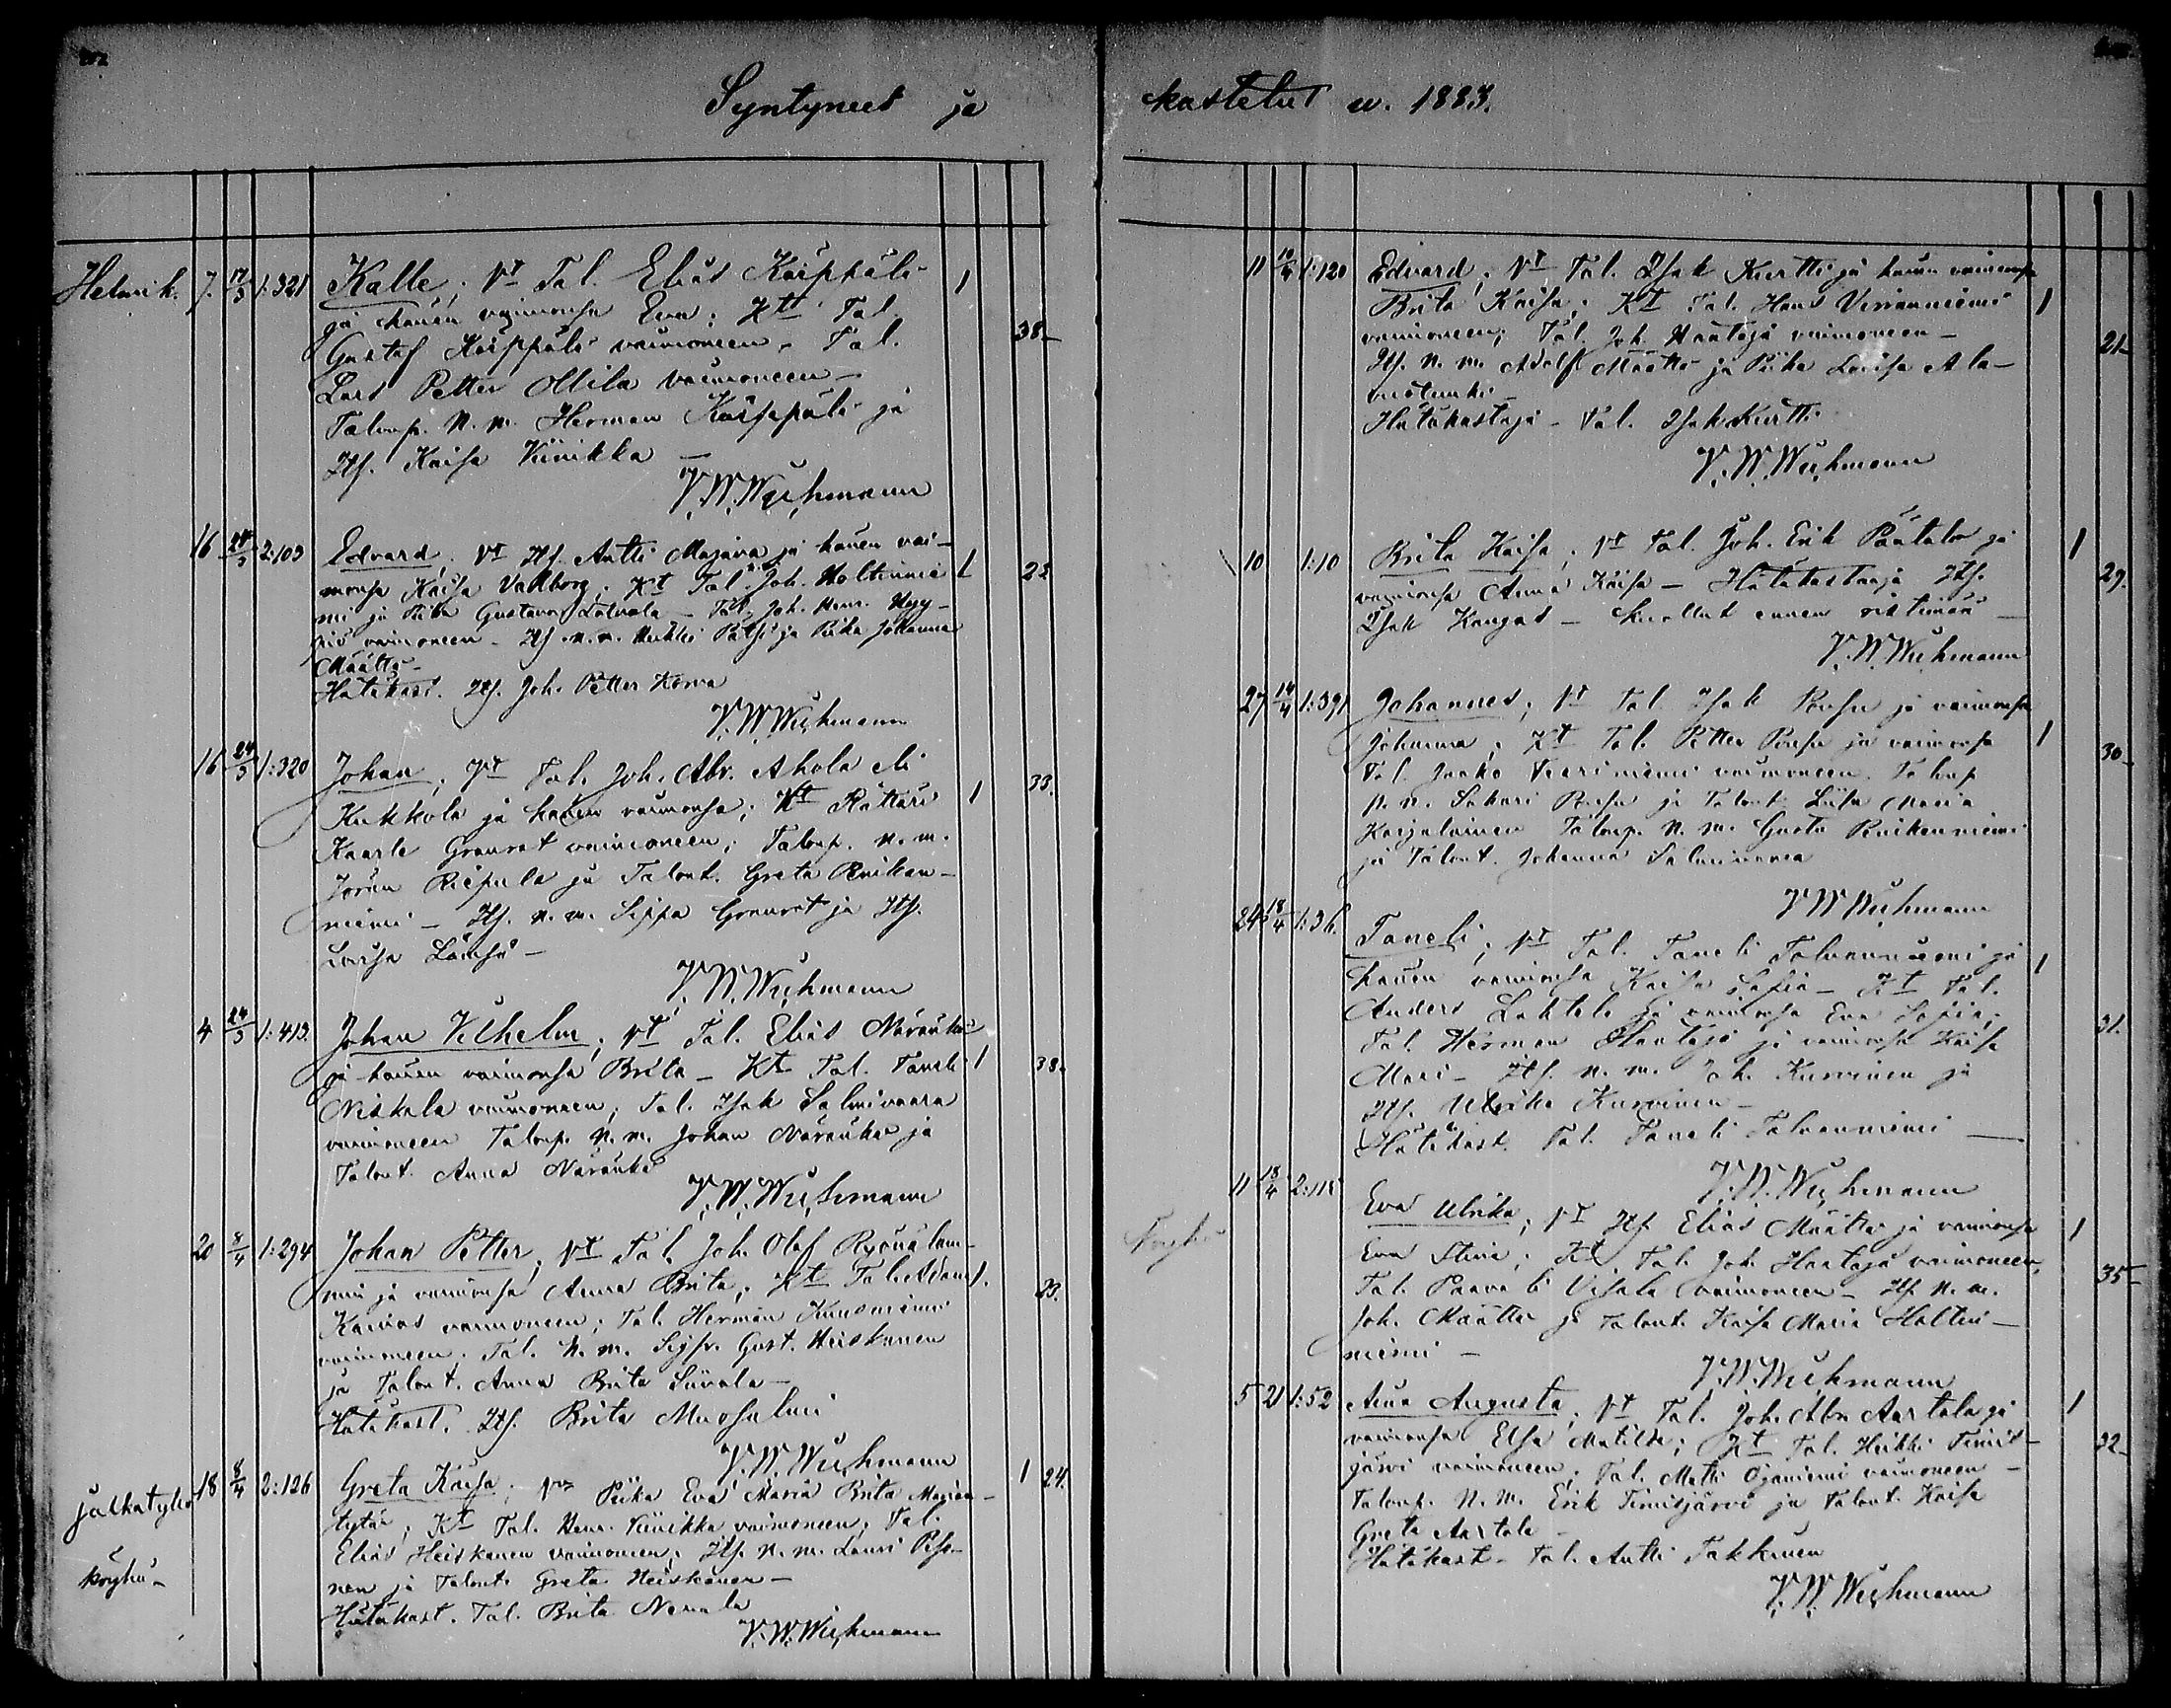 Syntyneet ja
kastetut w. 1883.
Helmik. 7. 17/3 1:321 Kalle; Vt Tal. Elias Käsppäli 1
ja hänen vaimonsa Eva; Ktt Tal.
Gustaf Käsppäli vaimoneen. Tal. 38-
Lars Petter Ollila vaimoneen -
Talonp. N. m. Herman Käsppäli ja
Itf. Kaisa Viinikka -
V. W. Wichmann
16 24/3 2:103 Edvard; Vt Itf. Antti Majava ja hänen vai-
monsa Kaisa Vallborg; Kt Tal. Joh. Holtinnie- 1 23.
mi ja Piika Gustava Latvala - Tal. Joh. Henr.
vaimoneen - Itf. n. m. Heikki ja Piika Johanna
Määttä -
Hätäkast. Itf. Joh. Petter Korva
V. W. Wichmann
16 24/3 1:320 Johan; Vt Tal. Joh. Abr. Ahola eli
Kukkola ja hänen vaimonsa; Kt Rättäri 1 33.
Kaarle Granrot vaimoneen; Talonp. n. m.
Joran Riepula ja Talont. Greta Raikan-
niemi - Itf. n. m. Sippa Granrot ja Itf.
Lovisa Lämsä -
V. W. Wichmann
4 24/3 1:413. Johan Vilhelm; Vt Tal. Elias Näränkä
ja hänen vaimonsa Brita - Kt Tal. Taneli 1 38.
Niskala vaimoneen; Tal. Isak Salmivaara
vaimoneen Talonp. N. m. Johan Näränkä ja
Talont. Anna Näränkä
V. W. Wichmann
20 8/4 1:294 Johan Petter; Vt Tal. Joh. Olof Ryönälam-
mi ja vaimonsa Anna Brita; Kt Tal. Adam 1. 23.
vaimoneen; Tal. Herman
vaimoneen; Tal. N. m. Sigfr. Gust. Heiskanen
ja Talont. Anna Brita Siivola -
Hätäkast. Itf. Brita Muosalmi
V. W. Wichmann
jalkatyhä 18 8/4 2:126 Greta Kaisa; Vn Piika Eva Maria Brita Marian- 1 24.
tytär; Kt Tal. Henr. Viinikka vaimoneen; Tal.
Elias Heiskanen vaimoneen; Itf. N. m. Lauri Peso-
köyhä - nen ja Talont. Greta Heiskanen -
Hätäkast. Tal. Brita Nevala
V. W. Wichmann
11 1:120 Edvard; Vt Tal. Isak Kurtti ja hänen vaimonsa
Brita Kaisa; Kt Tal. Hans Virranniemi 1
vaimoneen; Tal. Joh. Haataja vaimoneen - 21-
Itf. N. m. Adolf Määttä ja Piika Lovisa Ala-
vuotunki -
Hätäkastaja - Tal. Isak Kurtti
V. W. Wichmann
10 1:10 Brita Kaisa; Vt Tal. Joh. Erik Päätalo ja 1
vaimonsa Anna Kaisa - Hätäkastaaja Itf. 29.
Isak Kangas - Kuollut ennen ristimän -
V. W. Wichmann
27 14/4 1:391 Johannes; Vt Tal. Isak Pousu ja vaimonsa
Johanna; Kt Tal. Petter Pousu ja vaimonsa 1 30-
Tal. Jaako vaimoneen. Talonp
N. m. Sakari Pousu ja Talont. Liisa Maria
Karjalainen Talonp. N. m. Gusta Raikanniemi
ja Talont. Johanna Salmivaara
V. W. Wichmann
24 18/4 1:36. Taneli; Vt Tal. Taneli Talvanniemi ja
hänen vaimonsa Kaisa Sofia - Kt Tal. 1
Anders Lahtela ja vaimonsa Eva Sofia;
Tal. Herman Haataja ja vaimonsa Kaisa 31.
Mari - Itf. n. m. Joh. Kurvinen ja
Itf. Ulrika Kurvinen -
Hätäkast. Tal. Taneli Talvanniemi -
V. W. Wichmann
11 18/4 2:115 Eva Ulrika; Vt Itf. Elias Määttä ja vaimonsa
Köyhä Eva Stina; Kt Tal. Joh. Haataja vaimoneen, 1
Tal. Paavali Visala vaimoneen - Itf. N. m. 35-
Joh. Määttä ja Talont. Kaisa Maria Holtin-
niemi -
V. W. Wichmann
5 21 1:52 Anna Augusta; Vt Tal. Joh. Abr. Aartala ja 1
vaimonsa Elsa Matilda; Kt Tal. Heikki Timis- 32-
järvi vaimoneen; Tal. Matti Ojaniemi vaimoneen -
Talonp. N. m. Erik Timisjärvi ja Talont. Kaisa
Greta Aartala -
Hätäkast - Tal. Antti Takkinen
V. W. Wichmann